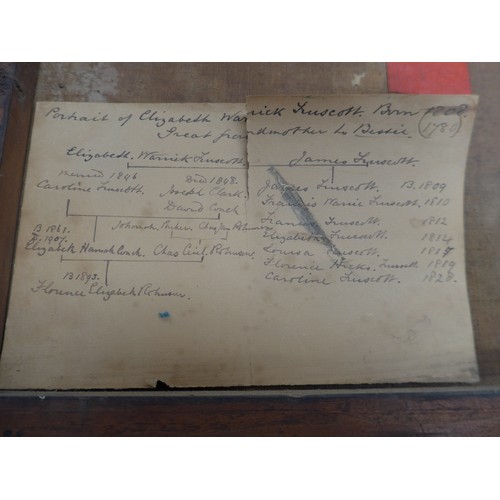 Portrait of Elizabeth Warrick Truscott. Born 1808.
Great grandmother to Bessie (1786)
Elizabeth. Warrick Truscott
James Truscott.
married 1846 Died 1848.
Caroline Truscott Joseph Clark.
David Couch
B 1861.
1907.
Elizabeth Hannah Couch. Chas Cecil Robinson.
B 1893.
Florence Elizabeth Robinson.
James Truscott. B. 1809
Francis Warric Truscott. 1810
Francis Truscott. 1812
Elizabeth Truscott. 1814
Louisa Truscott. 1817
Florence Hicks. Truscott 1819
Caroline Truscott. 1828.